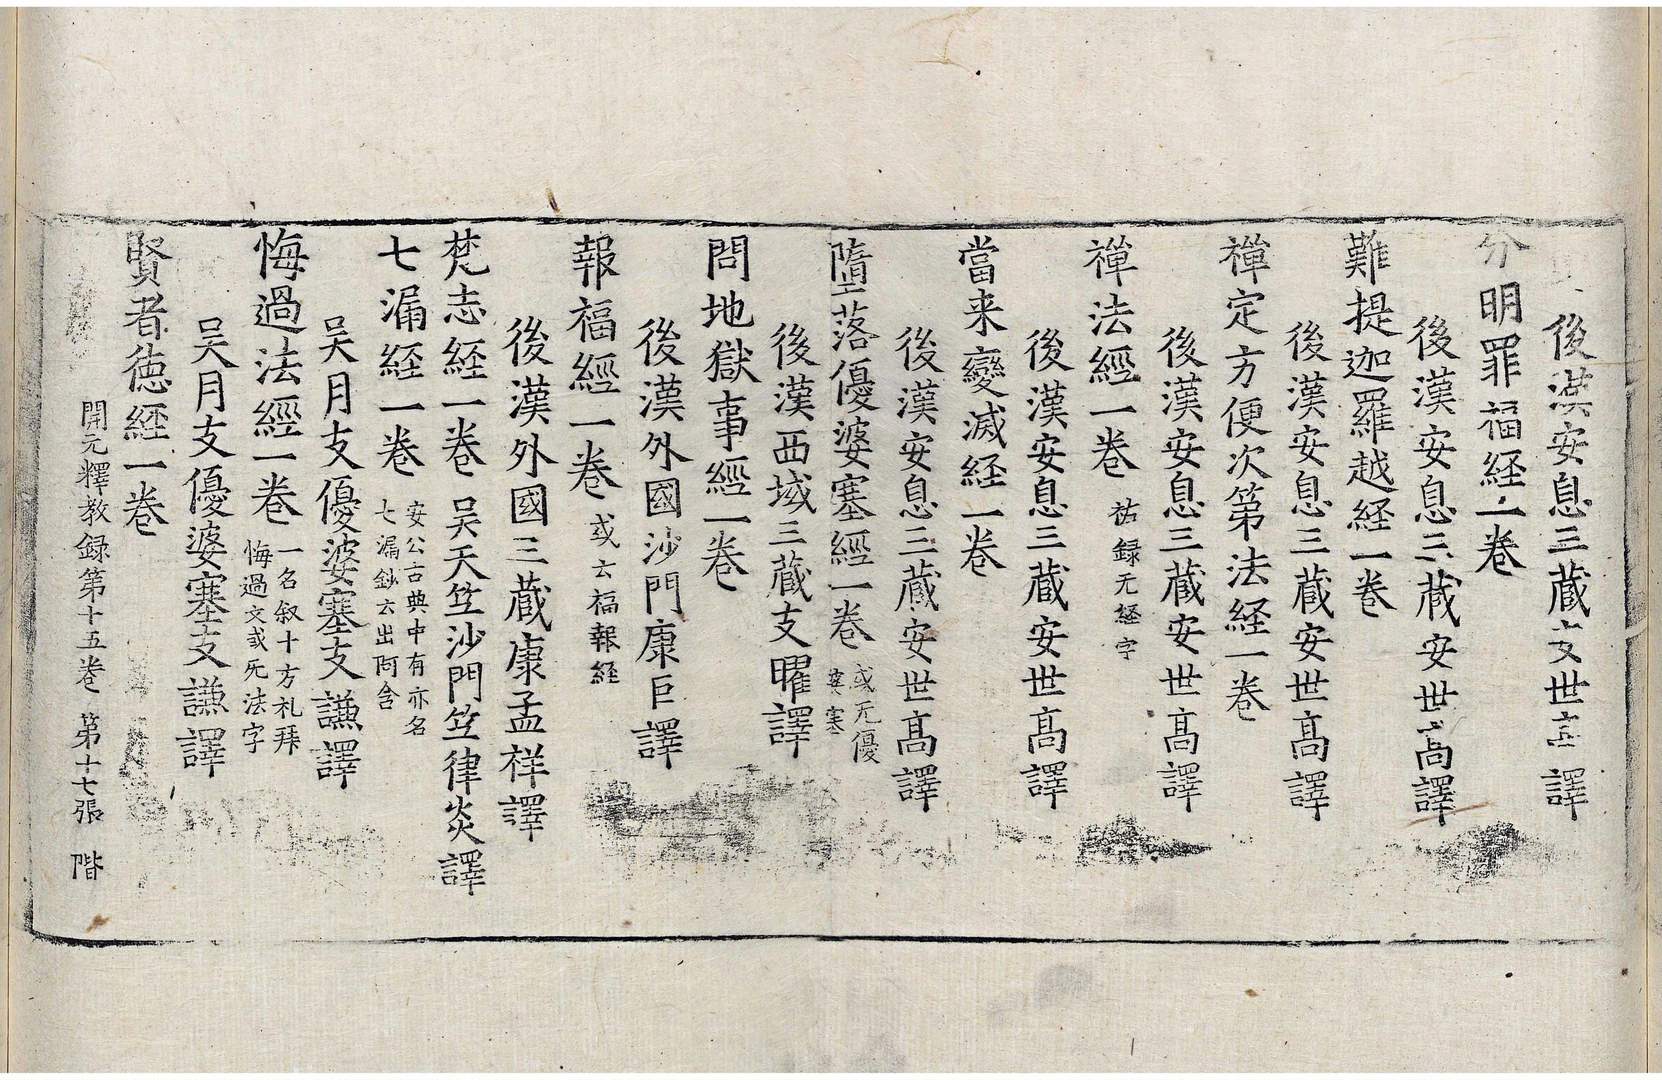 後漢安息三藏安世高譯
分明罪福經一卷
後漢安息三藏安世高譯
難提迦羅越経一卷
後漢安息三藏安世高譯
禪定方便次第法経一卷
後漢安息三藏安世高譯
禪法經一卷 祐録无経字
後漢安息三藏安世高譯
當来變滅経一卷
後漢安息三藏安世高譯
墮落優婆塞經一卷 或无優
婆塞
後漢西域三藏支曜譯
問地獄事經一卷
後漢外國沙門康巨譯
報福經一卷 或云福報経
後漢外國三藏康孟祥譯
梵志経一卷 吴天竺沙門竺律炎譯
七漏経一卷 安公古典中有亦名
七漏鈔云出阿含
吴月支優婆塞支謙譯
悔過法經一卷 一名叙十方礼拜
悔過文或无法字
吴月支優婆塞支謙譯
賢者德經一卷
開元釋教録第十五卷 第十七張 階